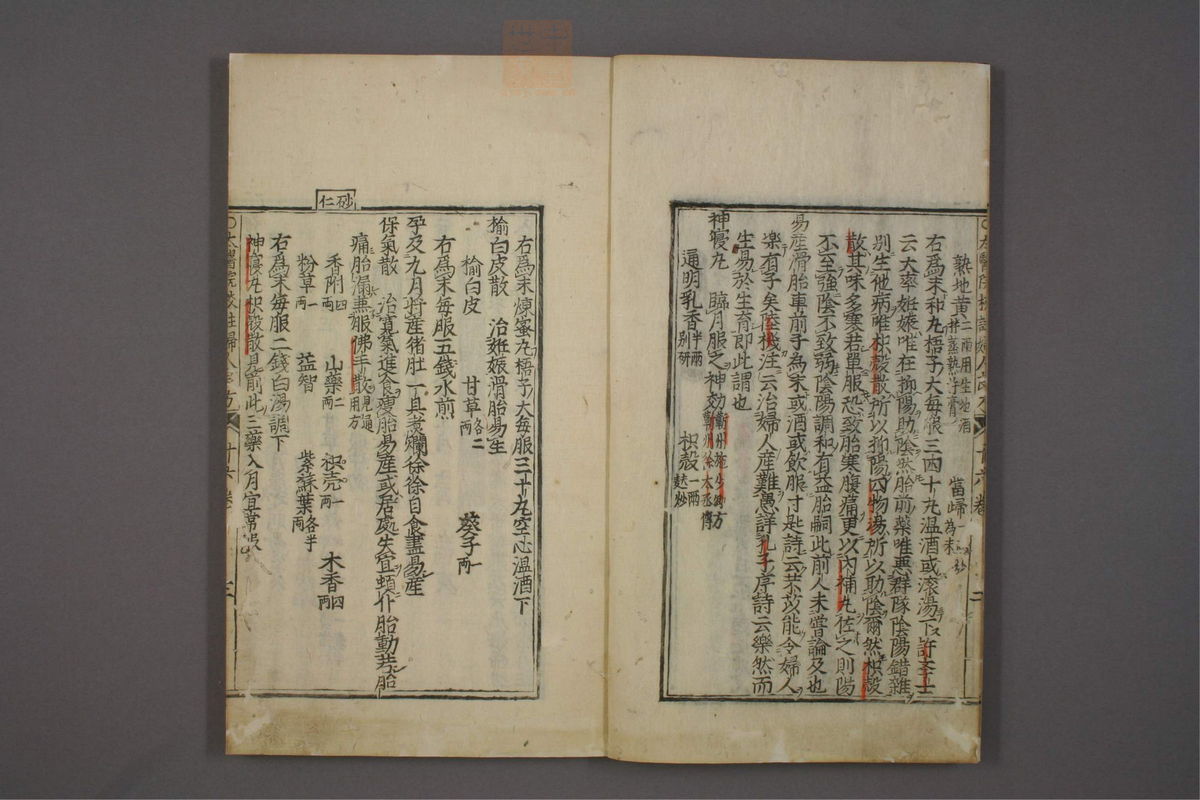 熟地黃二兩用生地酒井蒸熟洋膏 當歸一為末
右爲末和丸梧子大每服三四十丸溫酒或滾湯下許學士
云大率姙娠唯在抑陽助陰然胎前藥唯惡群隊陰陽錯雜
別生他病唯枳殼散所以抑陽四物湯所以助陰爾然枳殼
散其味多寒若單服恐致胎寒腹痛更以內補丸佐之則陽
不至強陰不致弱陰陽調和有益胎嗣此前人未嘗論及也
易産滑胎車前子為末或酒或飲服寸匙詩云芣苡能令婦人
樂有子矣陸機注云治婦人産難愚詳孔子序詩云樂然而
生易於生育即此謂也
神寢丸 臨月服之神効衢州施少卿方蘄州徐太丞傳
通明乳香半兩別研 枳殼一兩麩炒
右爲末煉蜜丸梧子大每服三十丸空心溫酒下
榆白皮散 治姙娠滑胎易生
榆白皮 甘草各二兩 葵子一兩
右爲末每服五錢水煎
孕及九月將産猪肚一具煮爛徐徐自食盡易産
保氣散 治寬氣進食瘦胎易産或居處失宜頓仆胎動共胎
痛胎漏兼服佛手散見通用方
砂仁
香附四兩 山藥二兩 枳壳一兩 木香四兩
粉草一兩 益智 紫蘇葉各半兩
右爲末每服二錢白湯調下
神寢丸枳殼散見前此三藥入月宜常服